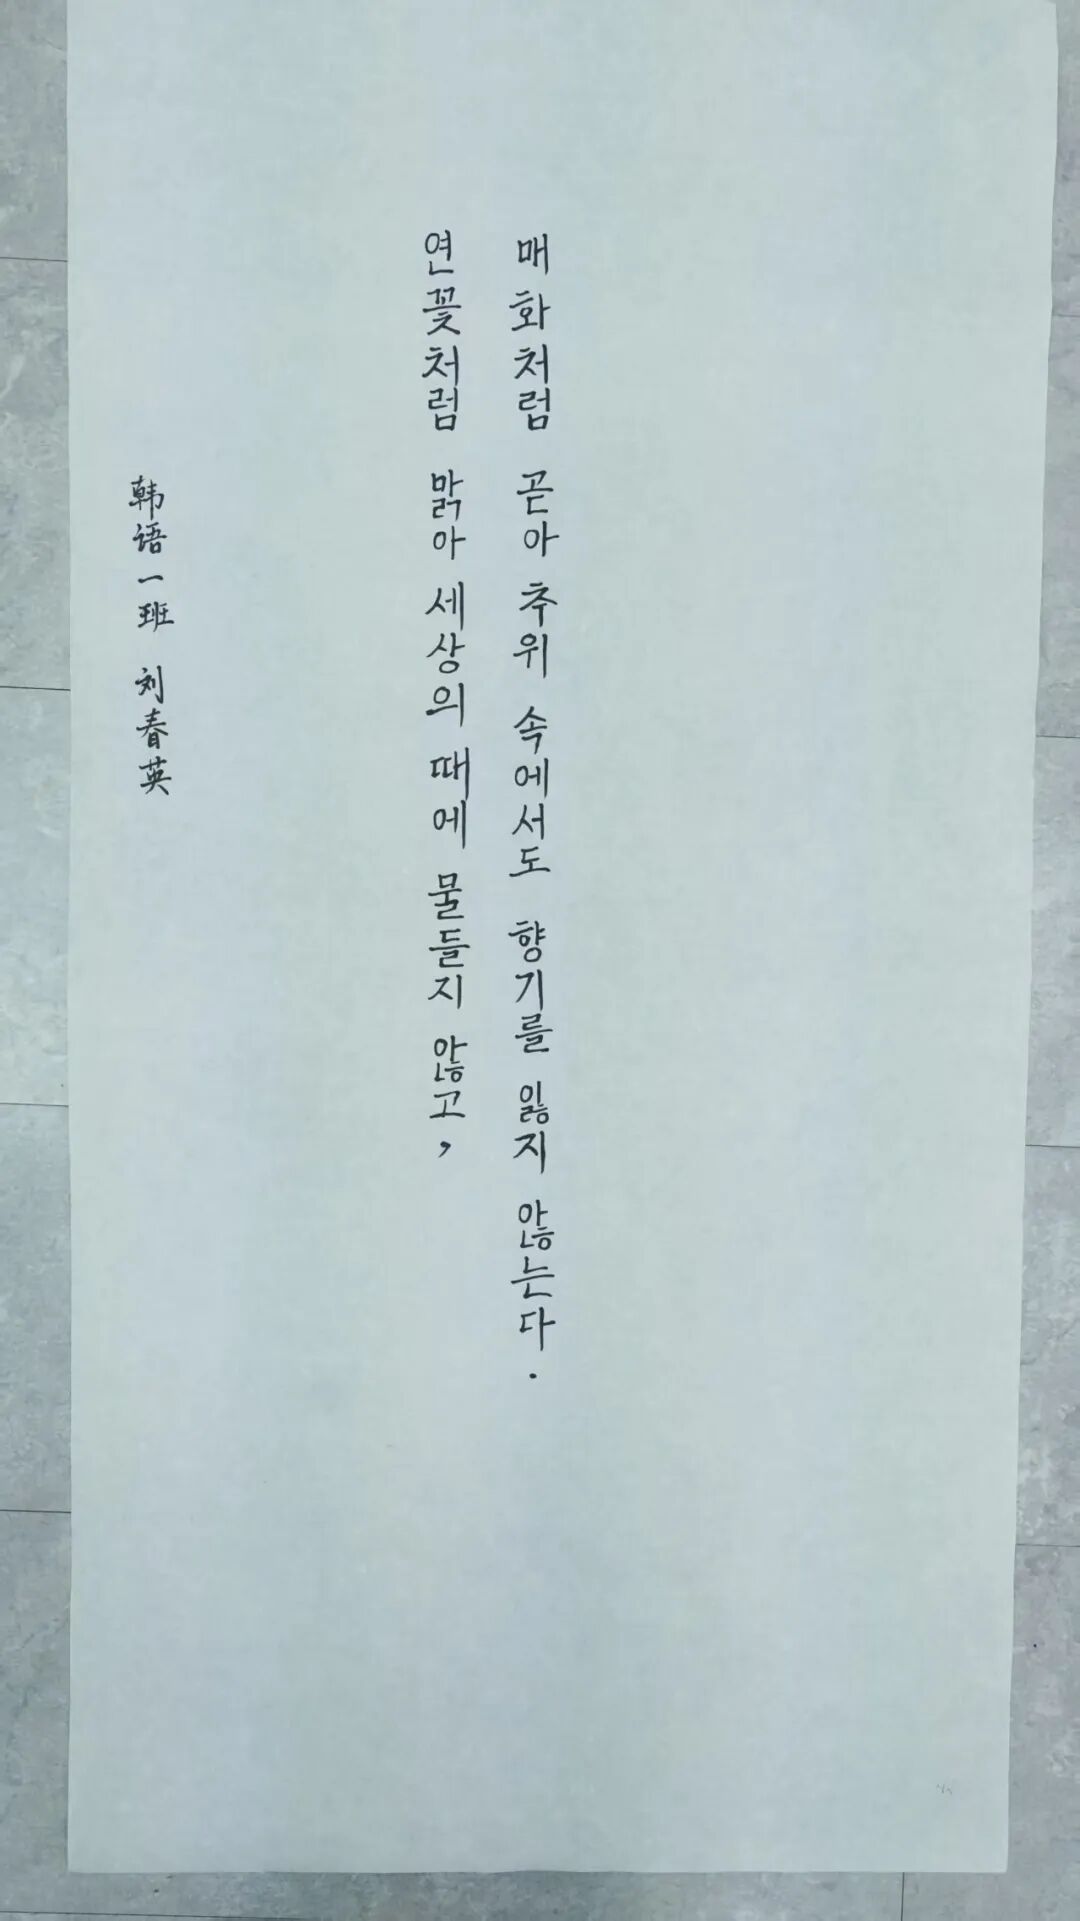 매화처럼 곧아 추위 속에서도 향기를 잃지 않는다.
연꽃처럼 맑아 세상의 때에 물들지 않고,
韩语一班 刘春英